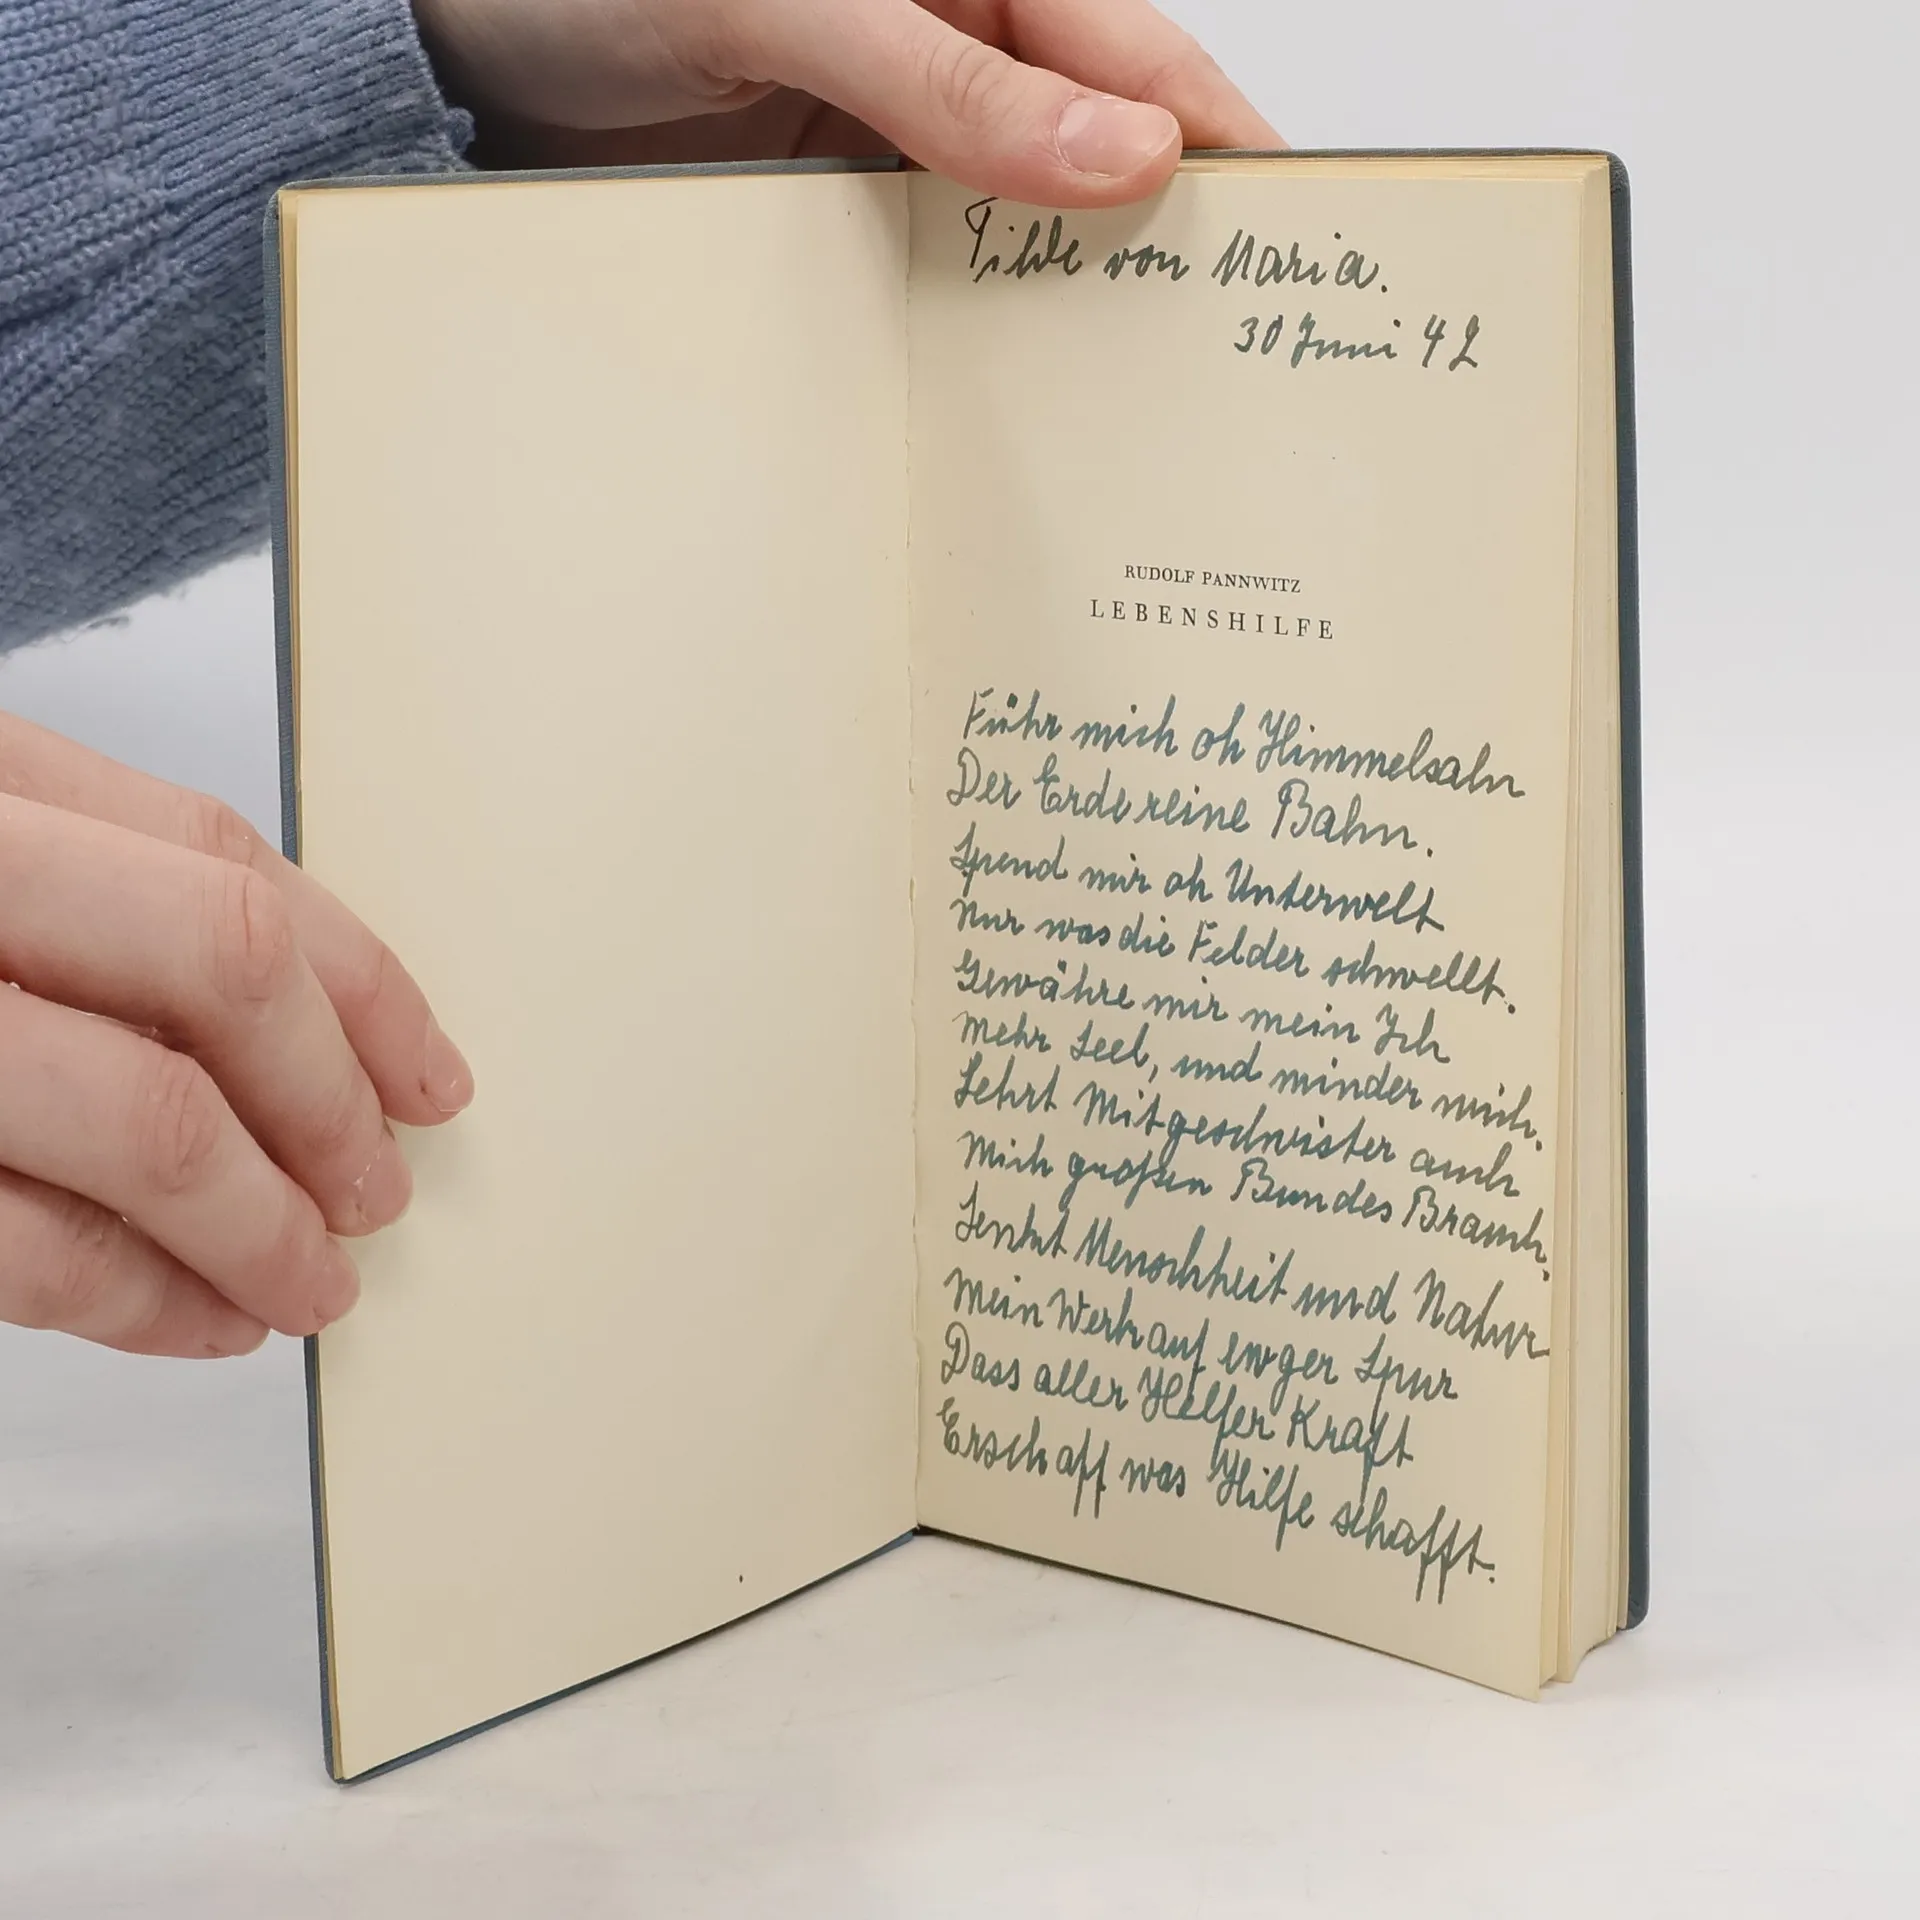 Tilde von Maria.
30 Juni 42
RUDOLF PANNWITZ
LEBENSHILFE
Führ mich oh Himmelsahn
Der Erde reine Bahn.
Spend mir oh Unterwelt
Nur was die Felder schwellt.
Gewähre mir mein Ich
Mehr Seel, und minder mich.
Lehrt Mitgeschwister auch
Mich großen Bundes Brauch.
Lenket Menschheit und Natur
Mein Werk auf ewger Spur
Dass aller Helfer Kraft
Erschaff was Hilfe schafft.